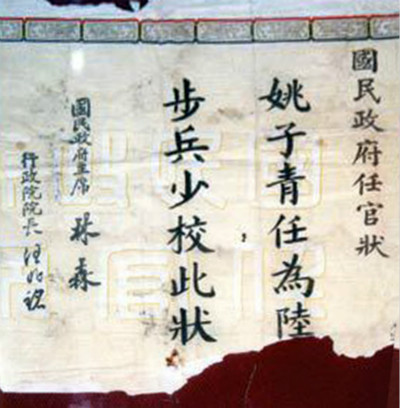 國民政府任官狀
姚子青任為陸
步兵少校此狀
國民政府主席 林森
行政院院長 汪兆銘